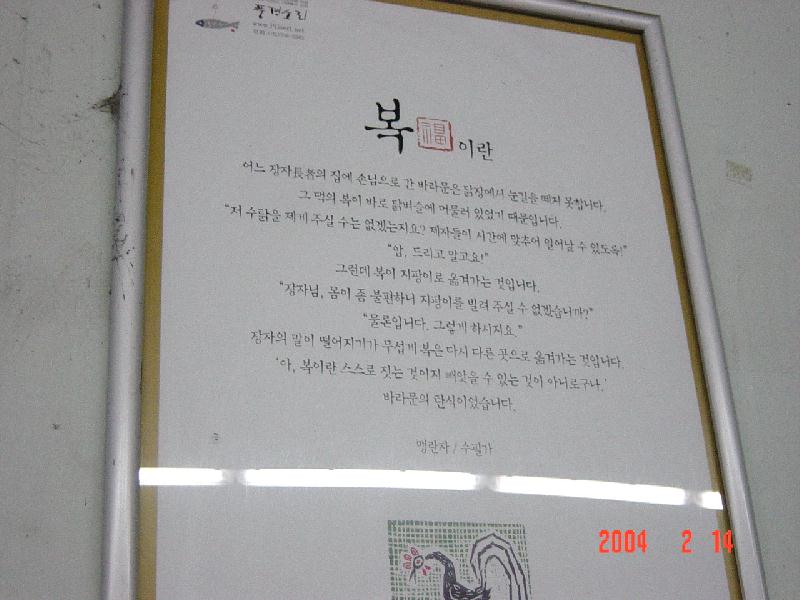 풍경소리
복 福 이란
어느 장자長者의 집에 손님으로 간 바라문은 닭장에서 눈길을 떼지 못합니다.
그 댁의 복이 바로 닭벼슬에 머물러 있었기 때문입니다.
"저 수탉을 제게 주실 수는 없겠는지요? 제자들이 시간에 맞추어 일어날 수 있도록!"
"암, 드리고 말고요!"
그런데 복이 지팡이로 옮겨가는 것입니다.
"장자님, 몸이 좀 불편하니 지팡이를 빌려 주실 수 없겠습니까?"
"물론입니다. 그렇게 하시지요."
장자의 말이 떨어지기가 무섭게 복은 다시 다른 곳으로 옮겨가는 것입니다.
'아, 복이란 스스로 짓는 것이지 빼앗을 수 있는 것이 아니로구나.'
바라문의 탄식이었습니다.
맹란자 / 수필가
2004 2 14